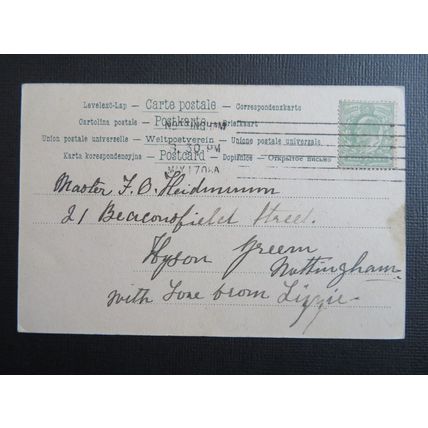 Levelező-Lap — Carte postale — Correspondenzkarte
Cartolina postale — Postkarte — Briefkaart
Union postale universelle — Weltpostverein — Unione postale universale
Karta korespondencyjna — Postcard — Dopisnice — Открытое письмо
3 30 PM
Master F. O. Heidmunn
21 Beaconsfield Street.
Hyson Green
Nottingham
with Love from Lizzie.